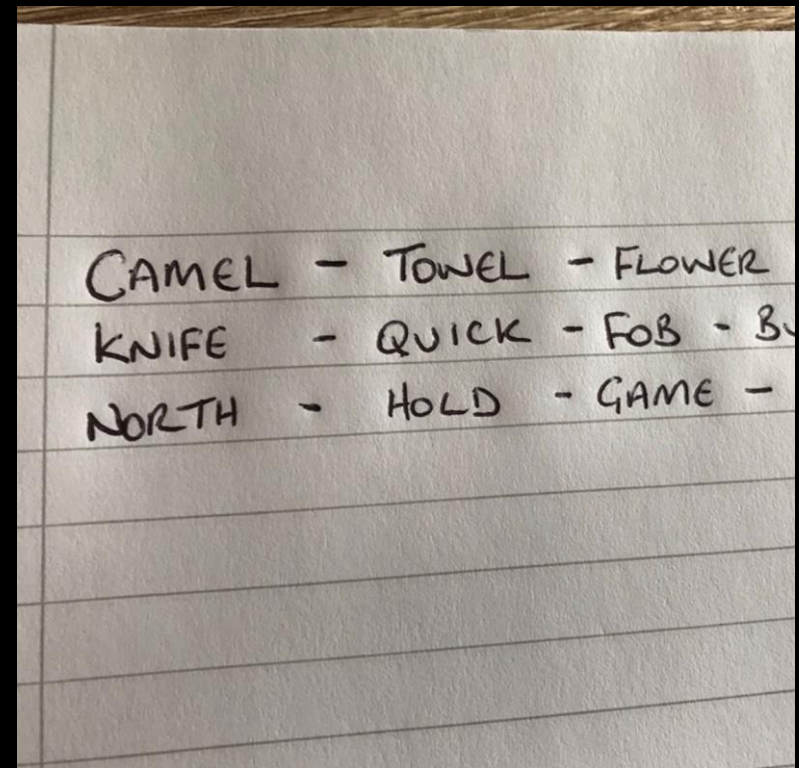 CAMEL - TOWEL - FLOWER
KNIFE - QUICK - FOB -
NORTH - HOLD - GAME -